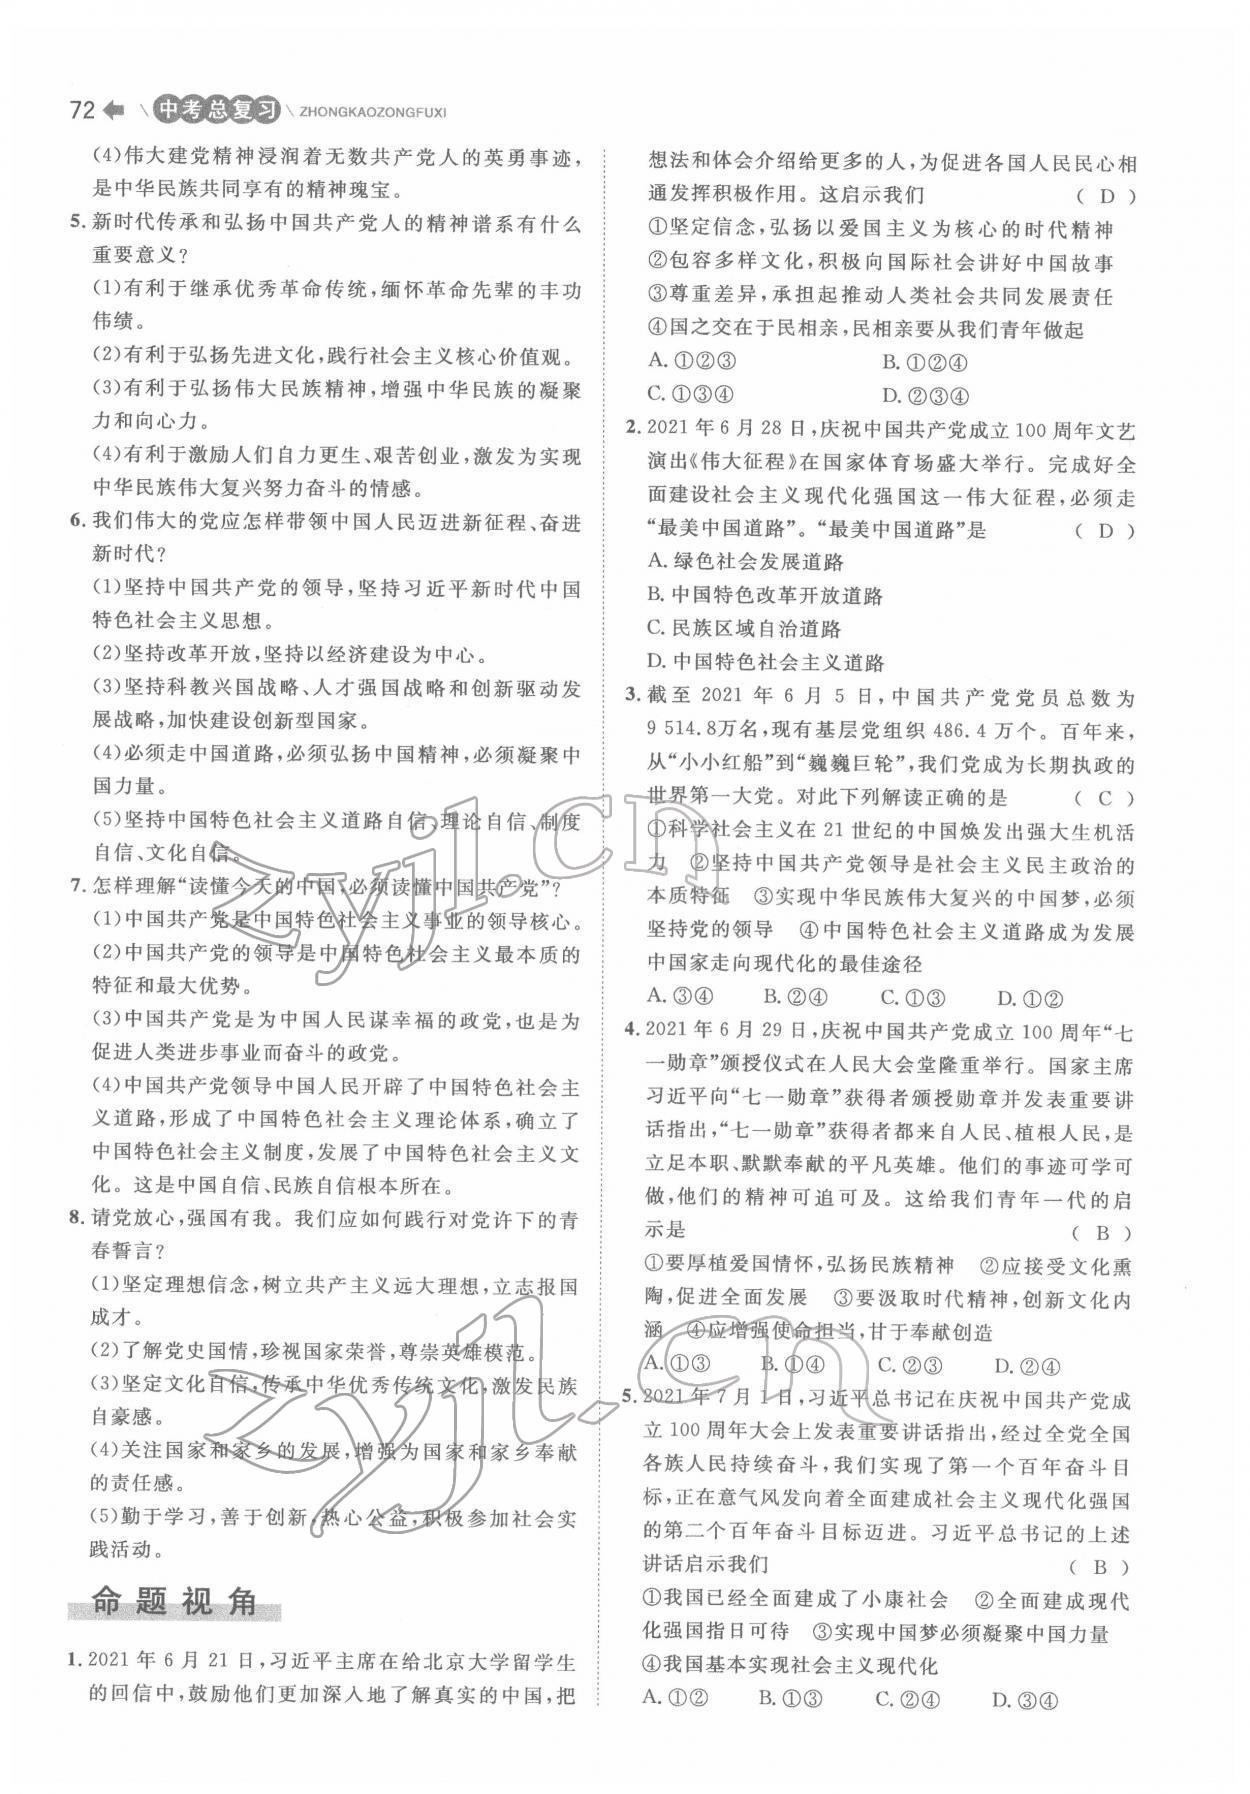 72 中考总复习 ZHONGKAOZONGFUXI
(4)伟大建党精神浸润着无数共产党人的英勇事迹，
是中华民族共同享有的精神瑰宝。
5. 新时代传承和弘扬中国共产党人的精神谱系有什么
重要意义?
(1)有利于继承优秀革命传统,缅怀革命先辈的丰功
伟绩。
(2)有利于弘扬先进文化,践行社会主义核心价值观。
(3)有利于弘扬伟大民族精神,增强中华民族的凝聚
力和向心力。
(4)有利于激励人们自力更生、艰苦创业,激发为实现
中华民族伟大复兴努力奋斗的情感。
6. 我们伟大的党应怎样带领中国人民迈进新征程、奋进
新时代?
(1)坚持中国共产党的领导,坚持习近平新时代中国
特色社会主义思想。
(2)坚持改革开放,坚持以经济建设为中心。
(3)坚持科教兴国战略、人才强国战略和创新驱动发
展战略,加快建设创新型国家。
(4)必须走中国道路,必须弘扬中国精神,必须凝聚中
国力量。
(5)坚持中国特色社会主义道路自信、理论自信、制度
自信、文化自信。
7. 怎样理解“读懂今天的中国,必须读懂中国共产党”?
(1)中国共产党是中国特色社会主义事业的领导核心。
(2)中国共产党的领导是中国特色社会主义最本质的
特征和最大优势。
(3)中国共产党是为中国人民谋幸福的政党,也是为
促进人类进步事业而奋斗的政党。
(4)中国共产党领导中国人民开辟了中国特色社会主
义道路,形成了中国特色社会主义理论体系,确立了
中国特色社会主义制度,发展了中国特色社会主义文
化。这是中国自信、民族自信根本所在。
8. 请党放心,强国有我。我们应如何践行对党许下的青
春誓言?
(1)坚定理想信念,树立共产主义远大理想,立志报国
成才。
(2)了解党史国情,珍视国家荣誉,尊崇英雄模范。
(3)坚定文化自信,传承中华优秀传统文化,激发民族
自豪感。
(4)关注国家和家乡的发展,增强为国家和家乡奉献
的责任感。
(5)勤于学习,善于创新,热心公益,积极参加社会实
践活动。
命题视角
1. 2021 年 6 月 21 日,习近平主席在给北京大学留学生
的回信中,鼓励他们更加深入地了解真实的中国,把
想法和体会介绍给更多的人,为促进各国人民民心相
通发挥积极作用。这启示我们 ( D )
①坚定信念,弘扬以爱国主义为核心的时代精神
②包容多样文化,积极向国际社会讲好中国故事
③尊重差异,承担起推动人类社会共同发展责任
④国之交在于民相亲,民相亲要从我们青年做起
A. ①②③ B. ①②④
C. ①③④ D. ②③④
2. 2021 年 6 月 28 日,庆祝中国共产党成立 100 周年文艺
演出《伟大征程》在国家体育场盛大举行。完成好全
面建设社会主义现代化强国这一伟大征程,必须走
“最美中国道路”。“最美中国道路”是 ( D )
A. 绿色社会发展道路
B. 中国特色改革开放道路
C. 民族区域自治道路
D. 中国特色社会主义道路
3. 截至 2021 年 6 月 5 日,中国共产党党员总数为
9 514.8万名,现有基层党组织 486.4 万个。百年来,
从“小小红船”到“巍巍巨轮”,我们党成为长期执政的
世界第一大党。对此下列解读正确的是 ( C )
①科学社会主义在 21 世纪的中国焕发出强大生机活
力 ②坚持中国共产党领导是社会主义民主政治的
本质特征 ③实现中华民族伟大复兴的中国梦,必须
坚持党的领导 ④中国特色社会主义道路成为发展
中国家走向现代化的最佳途径
A. ③④ B. ②④ C. ①③ D. ①②
4. 2021 年 6 月 29 日,庆祝中国共产党成立 100 周年“七
一勋章”颁授仪式在人民大会堂隆重举行。国家主席
习近平向“七一勋章”获得者颁授勋章并发表重要讲
话指出,“七一勋章”获得者都来自人民、植根人民,是
立足本职、默默奉献的平凡英雄。他们的事迹可学可
做,他们的精神可追可及。这给我们青年一代的启
示是 ( B )
①要厚植爱国情怀,弘扬民族精神 ②应接受文化熏
陶,促进全面发展 ③要汲取时代精神,创新文化内
涵 ④应增强使命担当,甘于奉献创造
A. ①③ B. ①④ C. ②③ D. ②④
5. 2021 年 7 月 1 日,习近平总书记在庆祝中国共产党成
立 100 周年大会上发表重要讲话指出,经过全党全国
各族人民持续奋斗,我们实现了第一个百年奋斗目
标,正在意气风发向着全面建成社会主义现代化强国
的第二个百年奋斗目标迈进。习近平总书记的上述
讲话启示我们 ( B )
①我国已经全面建成了小康社会 ②全面建成现代
化强国指日可待 ③实现中国梦必须凝聚中国力量
④我国基本实现社会主义现代化
A. ①② B. ①③ C. ②④ D. ③④
zyjl.cn
zyjl.cn